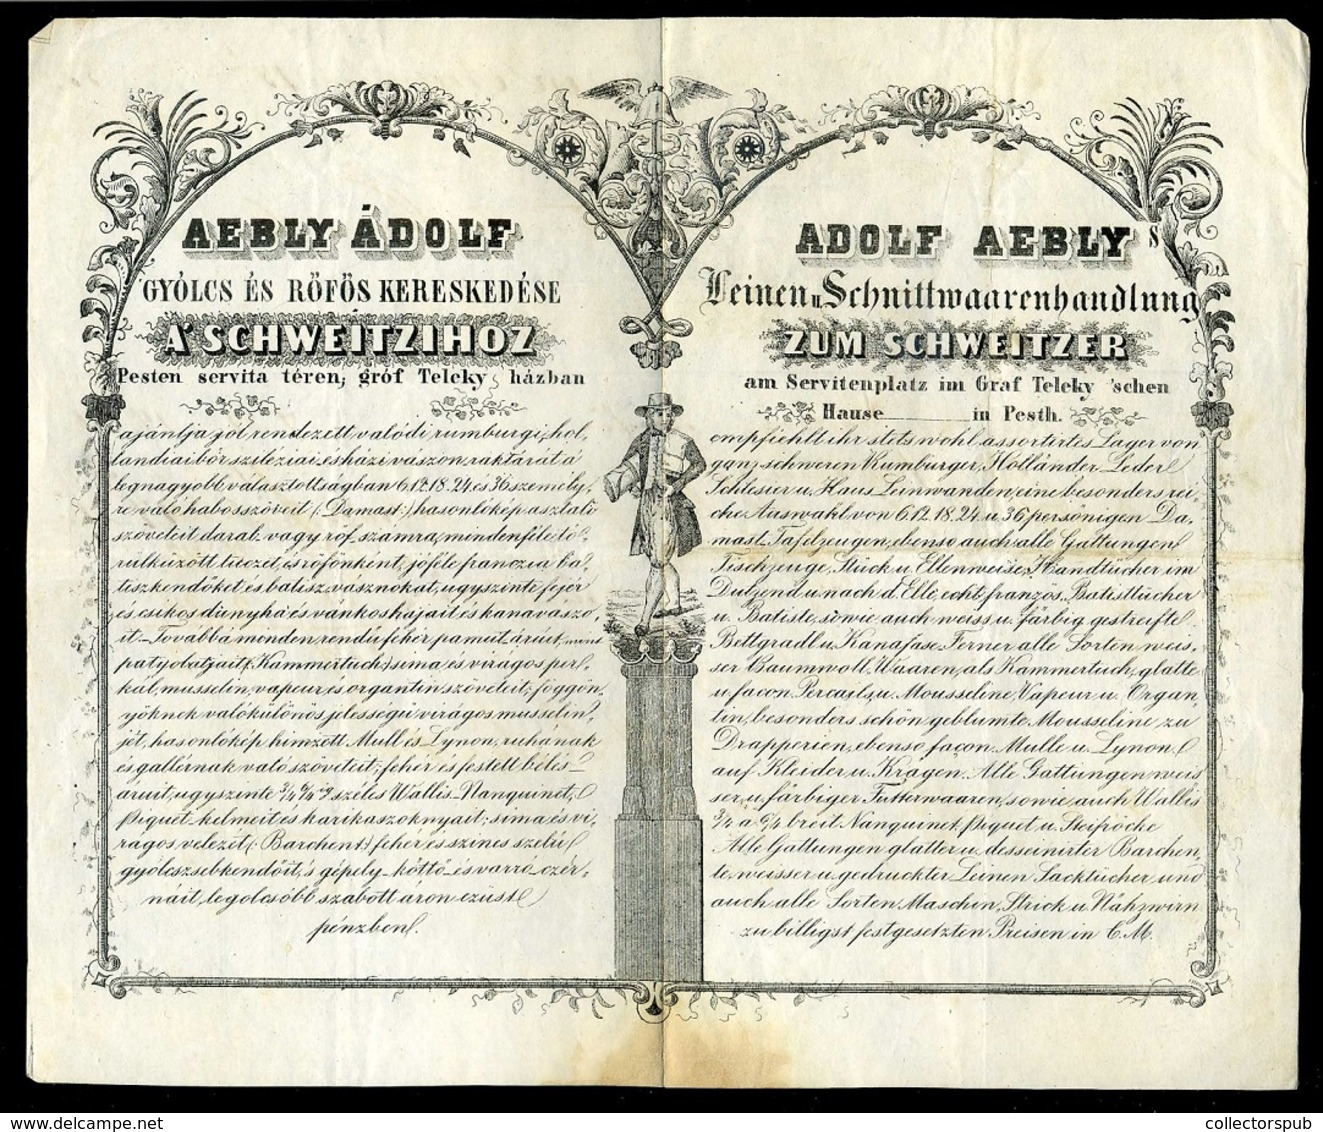 AEBLY ÁDOLF
GYÓLCS ÉS RŐFÖS KERESKEDÉSE
A' SCHWEITZIHOZ
Pesten servita téren, gróf Teleky házban
ajánlja jól rendezett valódi rumburgi, hol,
landiai bőr sziléziai és házi vászon raktárát a
legnagyobb választottságban 6,12,18,24 és 36 személy,
re való habosszöveit (:Damast:) hasonlókép asztali
szöveteit darab- vagy rőf számra, mindenféle tö,
rülközőit tuczet, és rőfönként, jóféle franczia ba,
tiszkendőket és batisz vásznokat, ugyszinte fejér
és csikos dunyha és vánkoshajait és kanavászo,
it.- Továbbá minden rendű fehér pamut áruit, mint
patyolatjait, (Kammertuch) sima és virágos per,
kál, musselin, vapeur és organtin szöveteit; függön,
yöknek való különös jelességű virágos musselin,
jét, hasonlókép himzett Mull és Lynon, ruhának
és gallérnak való szöveteit; fehér és festett bélés-
áruit, ugyszinte 3/4 6/4 széles Wallis-Nanquinet,
piquet-kelmeit és karikaszoknyáit; sima és vi,
rágos velezét (:Barchent:) fehér és szines szélű
gyólcszsebkendőit, 's gépely-kötő-és varró-czér,
náit, legolcsóbb szabott áron ezüst
pénzben.
ADOLF AEBLYS
Leinen u. Schnittwaarenhandlung
ZUM SCHWEITZER
am Servitenplatz im Graf Teleky'schen
Hause in Pesth.
empfiehlt ihr stets wohl assortirtes Lager von
ganz schweren Rumburger, Holländer, Leder
Schlesier u. Haus Leinwanden, eine besonders rei,
che Auswahl von 6,12,18,24 u. 36 persönigen Da,
mast Tafelzeugen, ebenso auch alle Gattungen
Tischzeuge, Stück u. Ellenweise, Handtücher im
Dutzend u. nach d. Elle, echt französ. Batisttücher
u. Batiste, sowie auch weiss u. färbig gestreifte
Bettgradl u. Kanafase. Ferner alle Sorten weis,
ser Baumwoll-Waaren, als Kammertuch, glatte
u. façon. Percails, u. Mousseline, Vapeur u. Organ,
tin, besonders schön geblumte Mousseline zu
Drapperien, ebenso façon. Mulle u. Lynon
auf Kleider u. Krägen. Alle Gattungen weis
ser, u. färbiger Futterwaaren, sowie auch Wallis
3/4 a 6/4 breit Nanquinet, piquet u. Steifröcke
Alle Gattungen glatter u. desseinirter Barchen,
te, weisser u. gedruckter Leinen Sacktücher und
auch alle Sorten Maschin, Strick u. Nähzwirn
zu billigst festgesetzten Preisen in C.M.
collectorspub